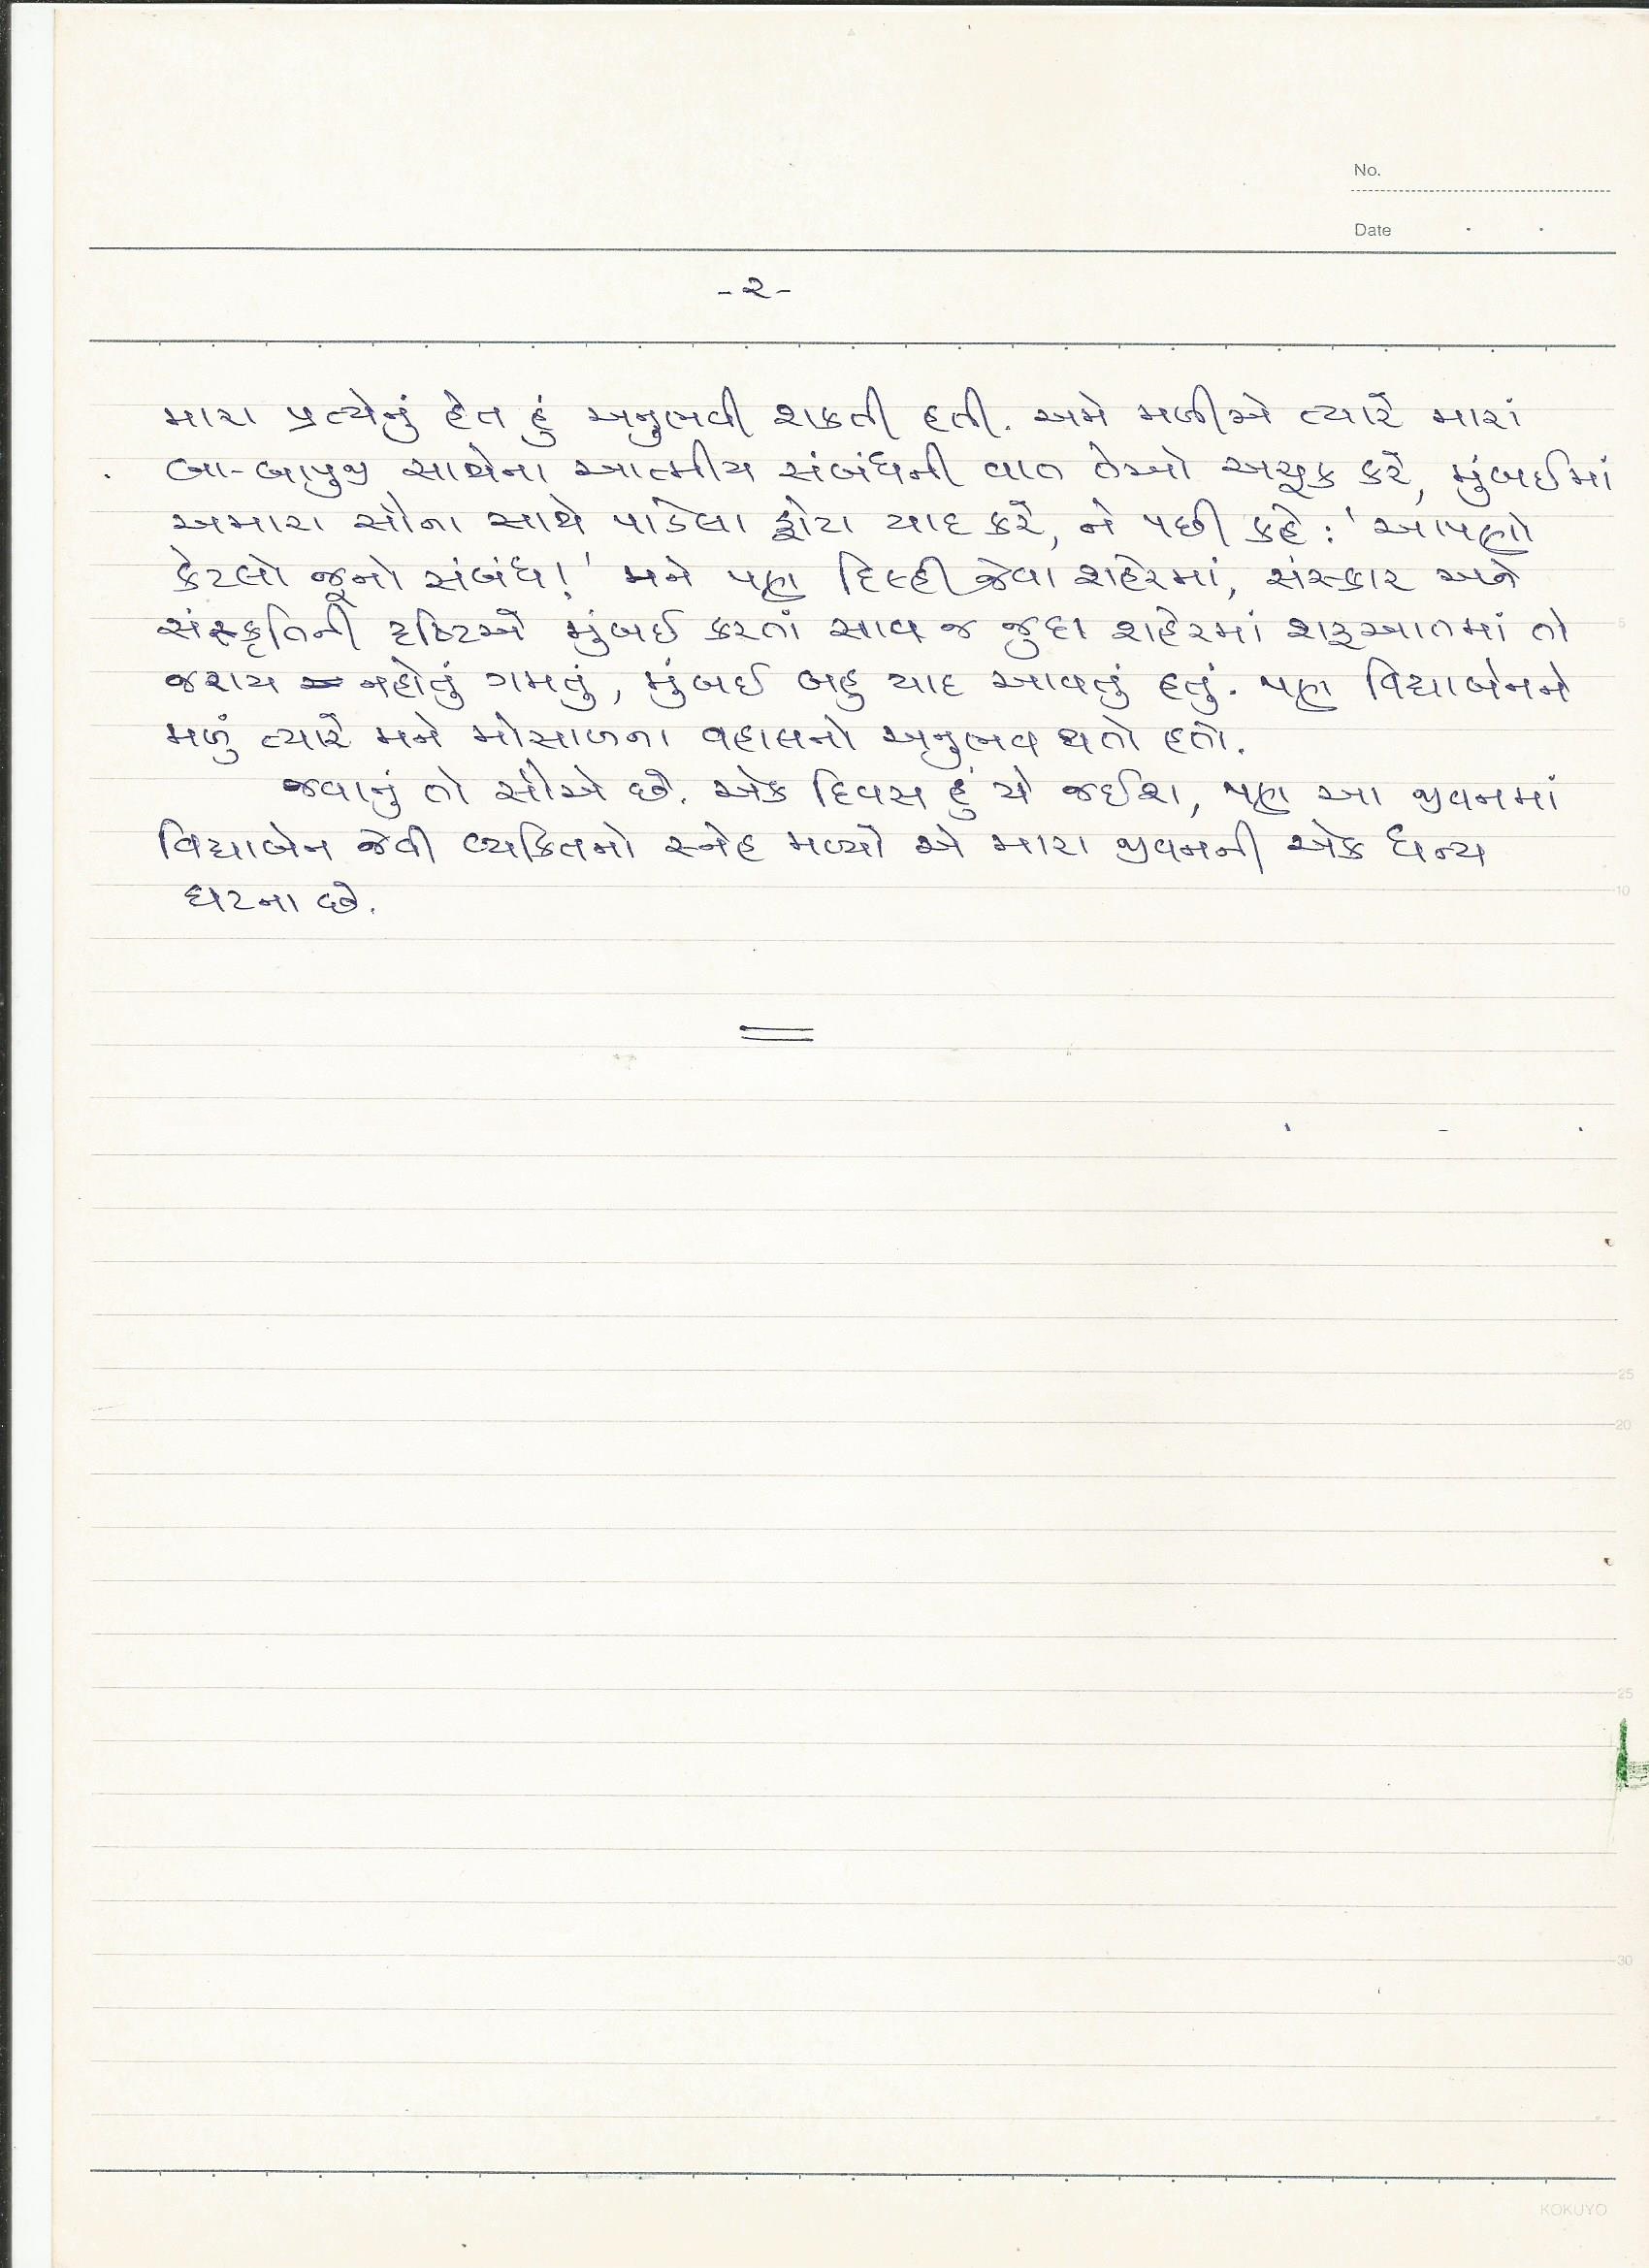 No.
Date
-૨-
મારા પ્રત્યેનું હેત હું અનુભવી શકતી હતી. અમે મળીએ ત્યારે મારાં
બા-બાપુજી સાથેના આત્મીય સંબંધની વાત તેઓ અચૂક કરે, મુંબઈમાં
અમારા સૌના સાથે પાડેલા ફોટા યાદ કરે, ને પછી કહે : 'આપણો
કેટલો જૂનો સંબંધ!' મને પણ દિલ્હી જેવા શહેરમાં, સંસ્કાર અને
સંસ્કૃતિની દૃષ્ટિએ મુંબઈ કરતાં સાવ જ જુદા શહેરમાં શરૂઆતમાં તો
જરાય નહોતું ગમતું, મુંબઈ બહુ યાદ આવતું હતું. પણ વિદ્યાબેનને
મળું ત્યારે મને મોસાળના વહાલનો અનુભવ થતો હતો.
જવાનું તો સૌએ છે. એક દિવસ હું યે જઈશ, પણ આ જીવનમાં
વિદ્યાબેન જેવી વ્યકિતનો સ્નેહ મળ્યો એ મારા જીવનની એક ધન્ય
ઘટના છે.
5
10
25
20
25
30
KOKUYO